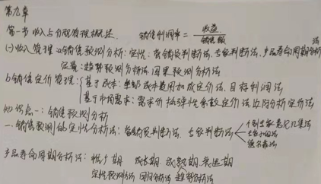 第九章
第一节 收入与分配管理概述 销售利润率=收益/销售额
(一)收入管理 a销售预测分析:定性:营销员判断法、专家判断法、产品寿命周期分析法
定量:趋势预测分析法 因果预测分析法
b销售定价管理:基于成本:全部成本费用加成定价法、目标利润法
基于市场需求:需求价格弹性系数定价法 边际分析定价法
知识点一:销售预测分析
一、销售预测的定性分析法:营销员判断法 专家判断法 个别专家意见汇集法
专家小组法
德尔菲法
产品寿命周期分析法:推广期 成长期 成熟期 衰退期
定性预测法 回归分析法 趋势分析法